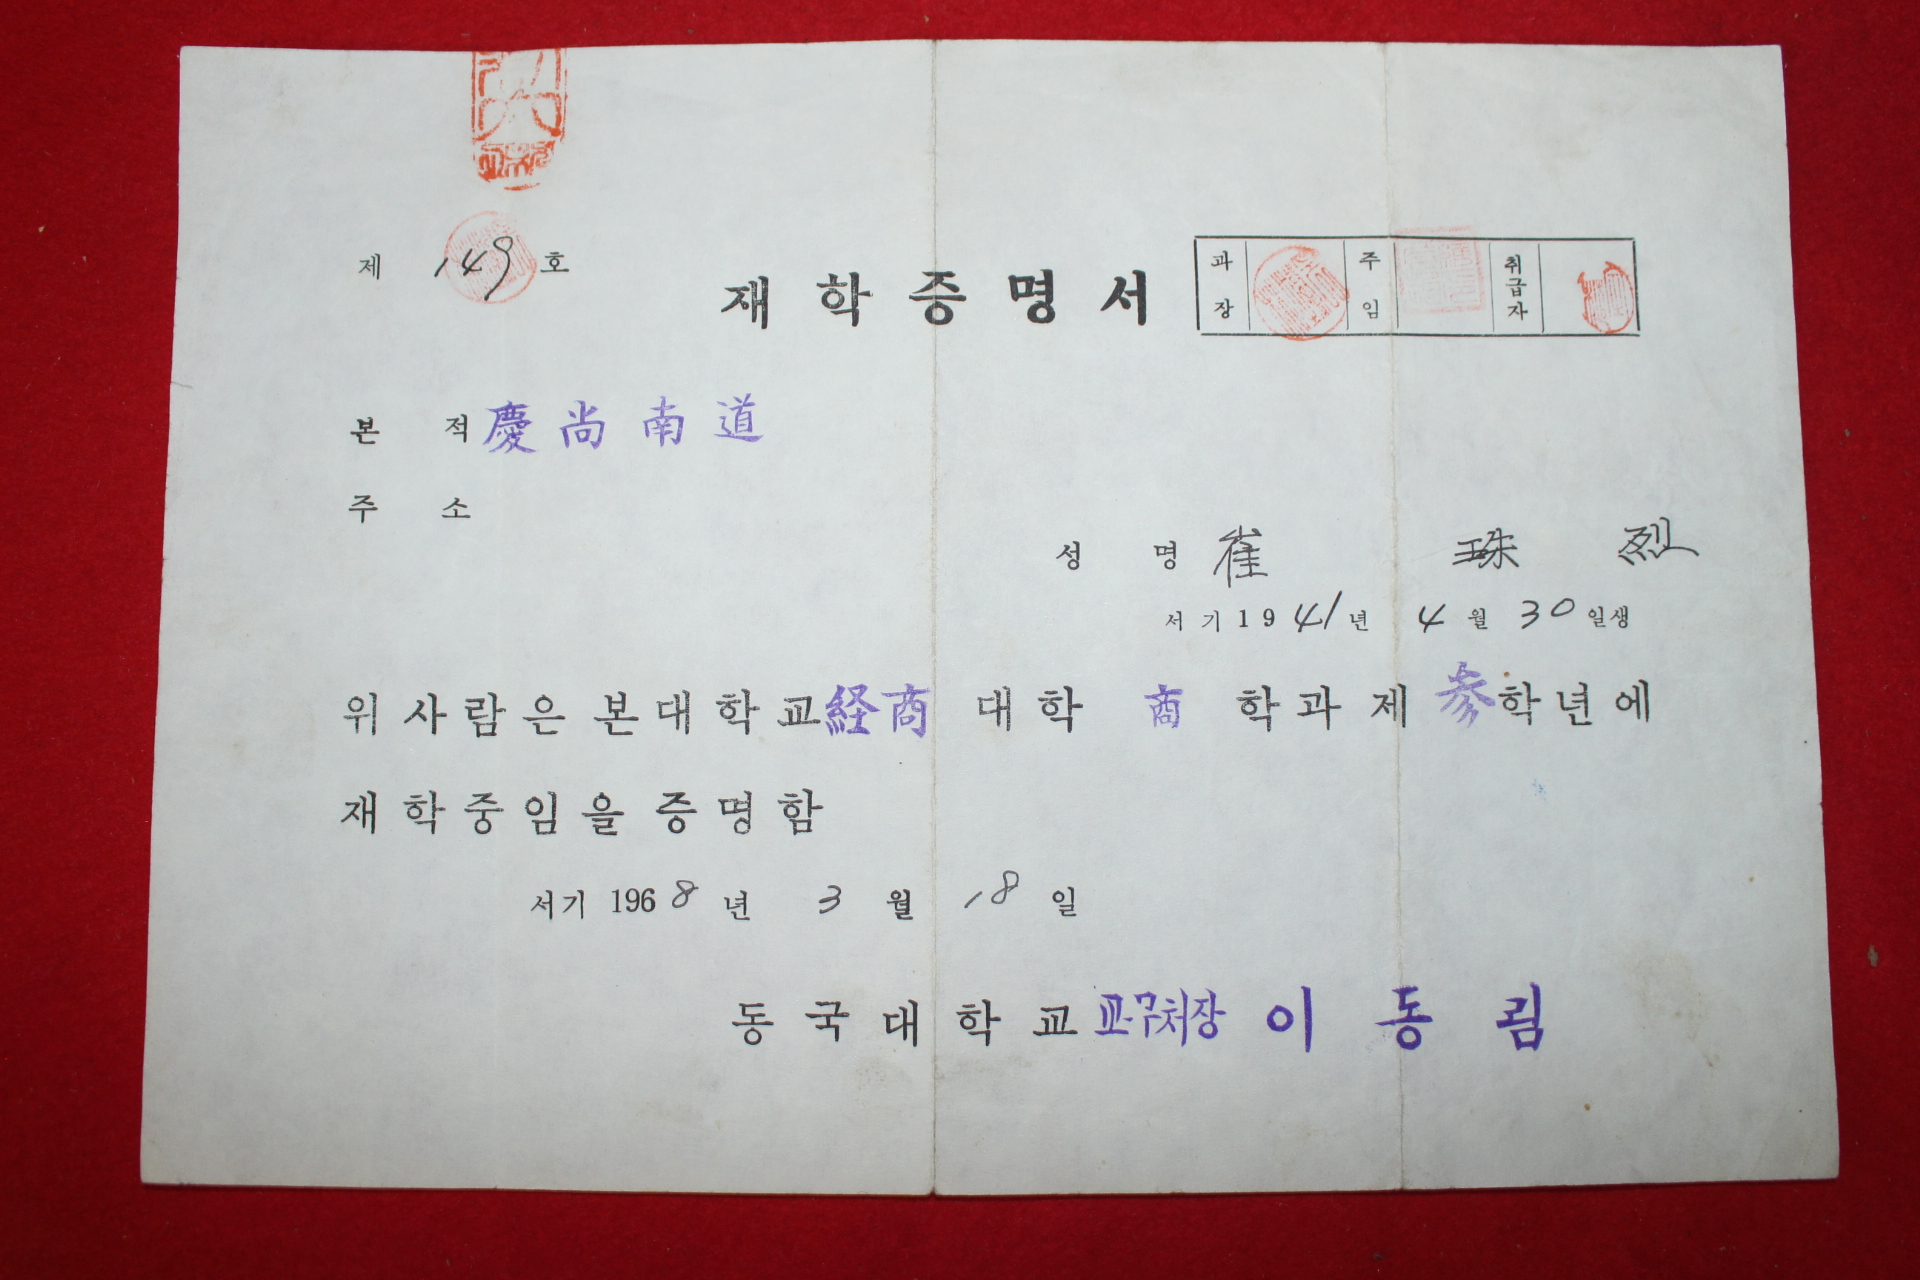 제 149 호
재학증명서
과장 주임 취급자
본 적 慶尚南道
주 소
성 명 崔 珠 烈
서기 1941년 4월 30일생
위사람은 본대학교 経商 대학 商 학과 제 参 학년에
재학중임을 증명함
서기 1968년 3월 18일
동국대학교 교무처장 이동림